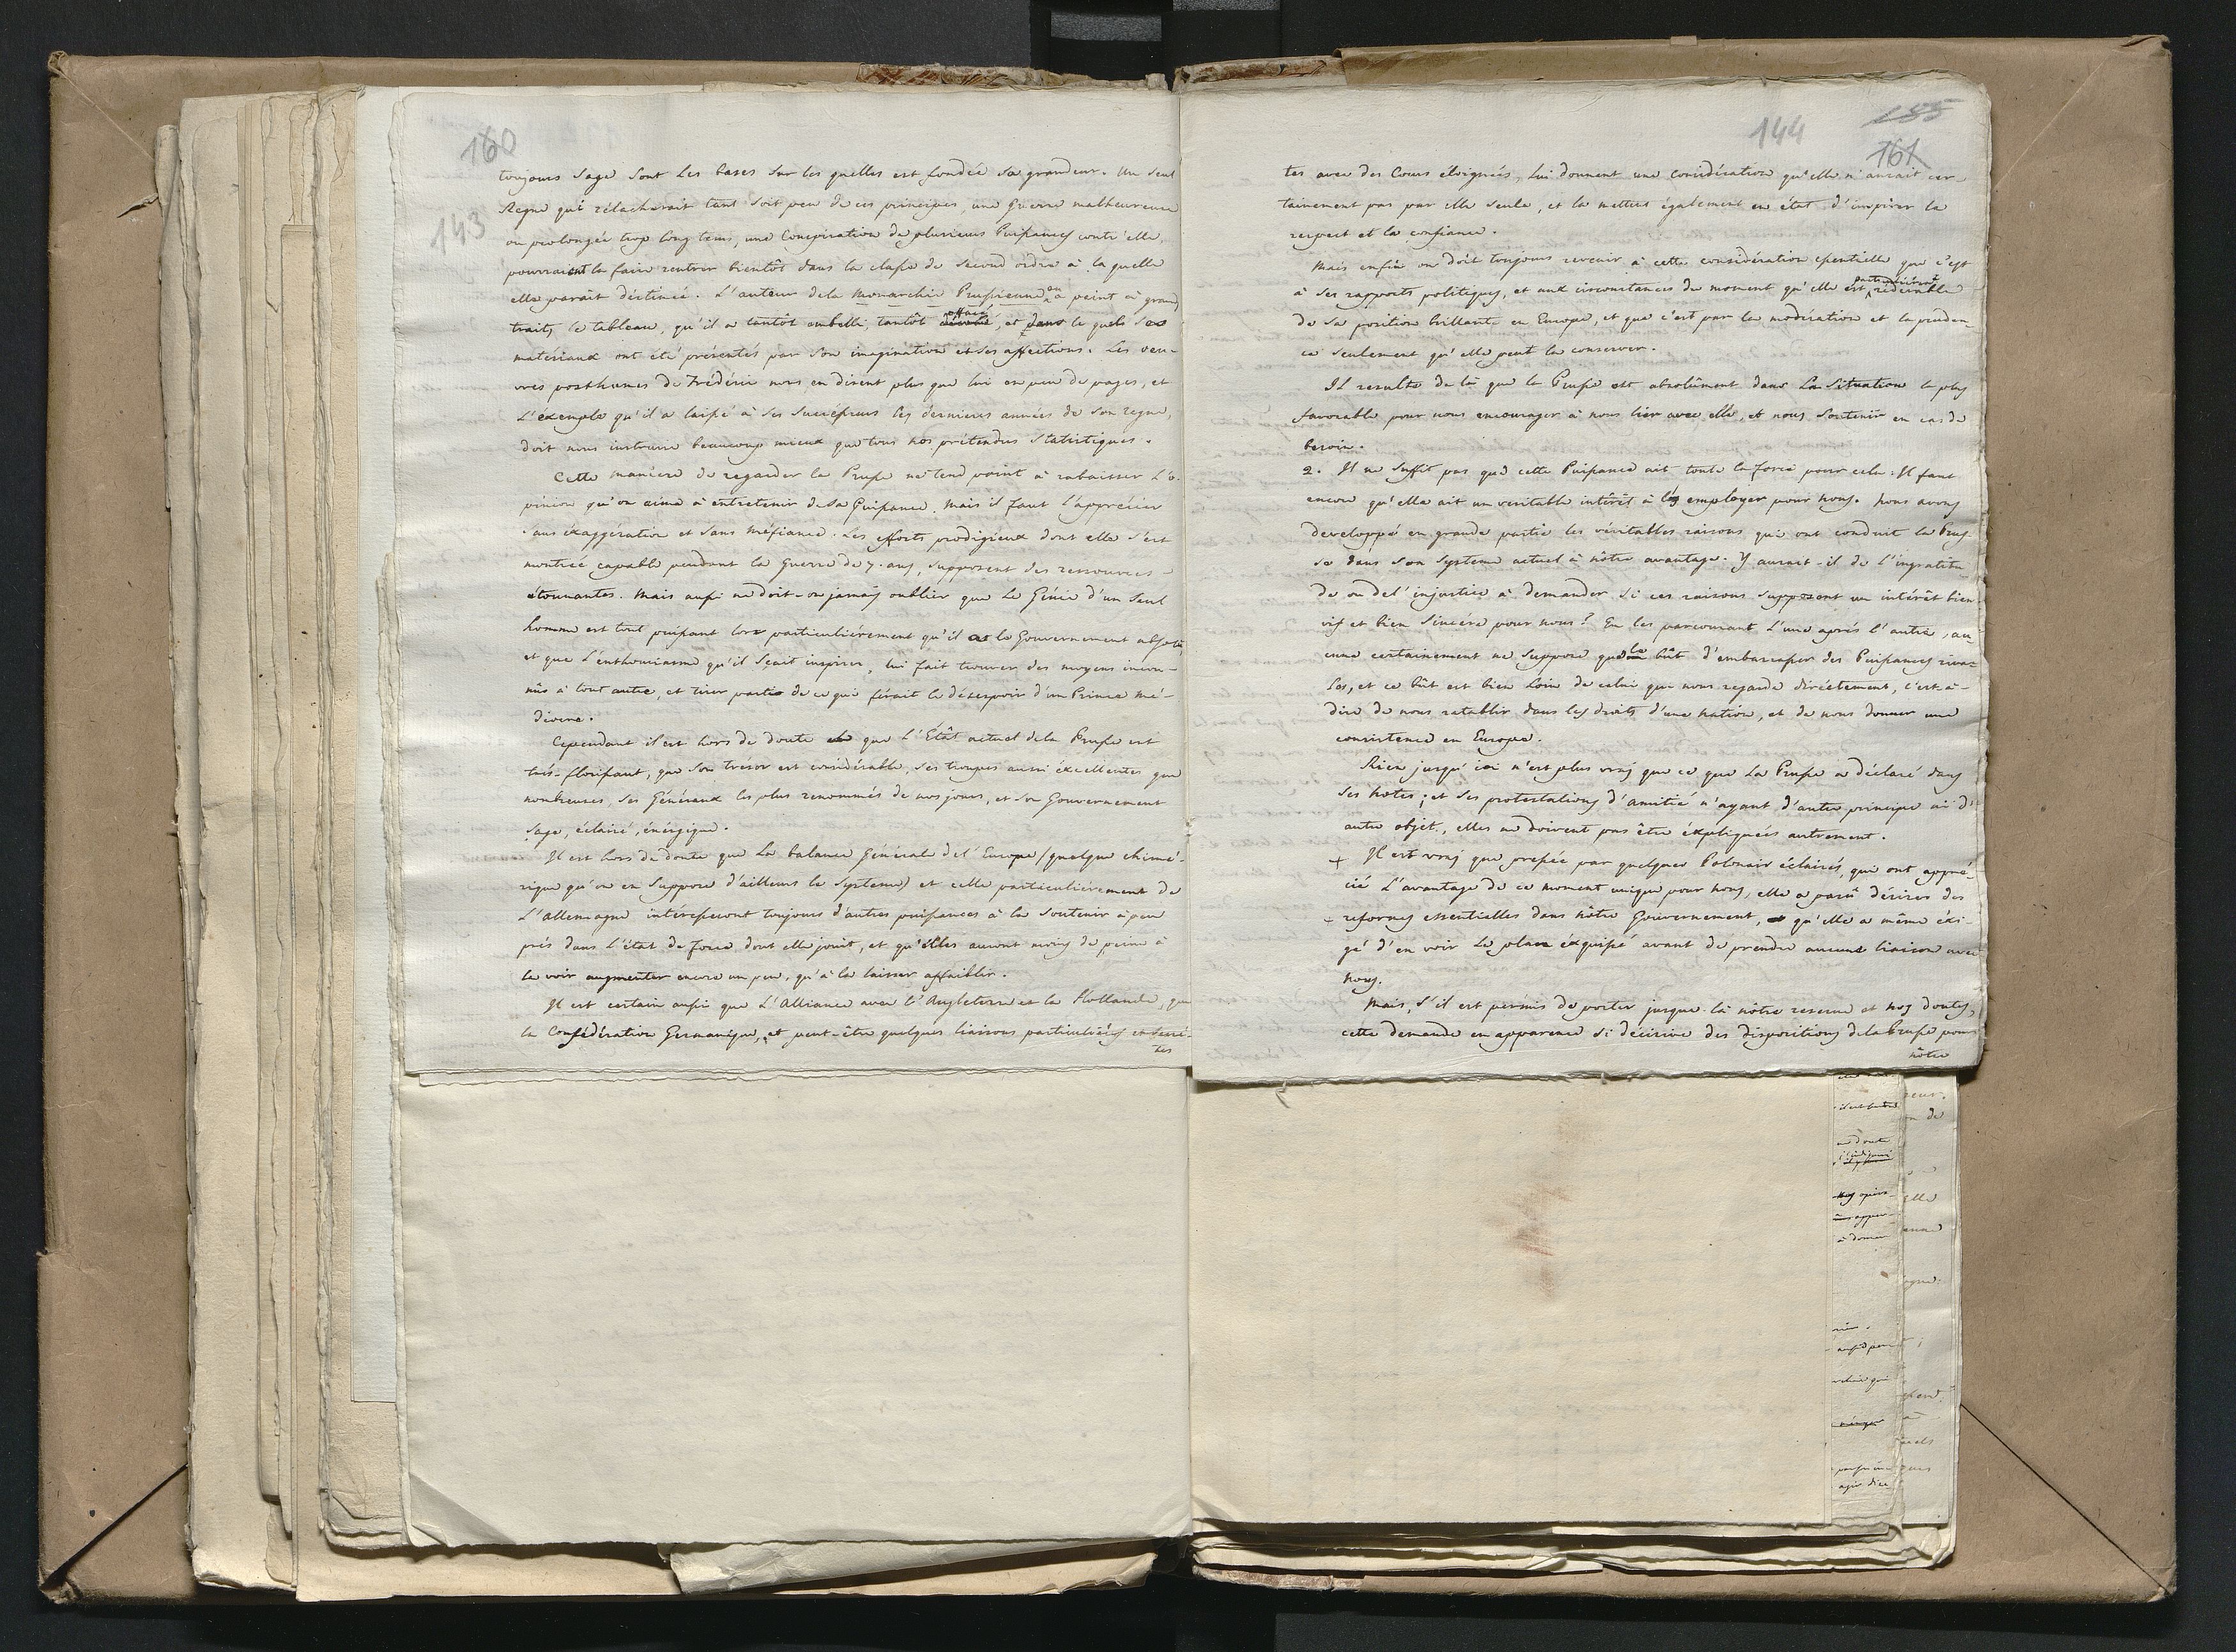 160
143
toujours sage sont les bases sur les quelles est fondée sa grandeur. Un seul
Regne qui rélacherait tant soit peu de ces principes, une guerre malheureuse
ou prolongée trop long tems, une Conspiration de plusieurs Puissances contr'elle,
pourraient la faire rentrer bientôt dans la classe de second ordre à la quelle
elle parait déstinée. L'auteur de la Monarchie Prussienne en a peint à grands
traits le tableau, qu'il a tantôt embelli, tantôt et dans le quels ses
materiaux ont été présentés par son imagination et ses affections. Les oeu-
vres posthumes de Fréderic nous en disent plus que lui en peu de pages, et
L'éxemple qu'il a laissé à ses successeurs les dernieres années de son regne,
doit nous instruire beaucoup mieux que tous nos prétendus Statistiques.
Cette maniere de regarder la Prusse ne tend point à rabaisser L'o-
pinion qu'on aime à entretenir de sa Puissance. Mais il faut l'apprécier
sans éxaggération et sans méfiance. Les efforts prodigieux dont elle s'est
montrée capable pendant la Guerre de 7. ans, supposent des ressources
étonnantes. Mais aussi ne doit-on jamais oublier que le Génie d'un seul
homme est tout puissant lors particuliérement qu'il a le Gouvernement absolu,
et que l'enthousiasme qu'il sçait inspirer, lui fait trouver des moyens incon-
nûs à tout autre, et tirer partie de ce qui férait le désespoir d'un Prince mé-
diocre.
Cependant il est hors de doute que L'Etât actuel de la Prusse est
trés-florissant, que son trésor est considérable, ses troupes aussi éxcellentes que
nombreuses, ses Généraux les plus renommés de nos jours, et son Gouvernement
sage, éclairé, énérgique.
Il est hors de doute que la balance générale de l'Europe (quelque chimé-
rique qu'on en suppose d'ailleurs le systeme) et celle particulierement de
L'Allemagne intéresseront toujours d'autres puissances à la soutenir à peu
prés dans l'état de force dont elle jouit, et qu'elles auront moins de peine à
le voir augmenter encore un peu, qu'à la laisser affaiblir.
Il est certain aussi que L'Alliance avec l'Angleterre et la Hollande, que
la Confédération Germanique, et peut-être quelques liaisons particuliéres et secré-
tes
144
155
161
tes avec des Cours éloignées, lui donnent une considération qu'elle n'aurait cer-
tainement pas par elle seule, et la mettent également en état d'inspirer le
respect et la confiance.
Mais enfin on doit toujours revenir à cette considération essentielle que c'est
à ses rapports politiques, et aux circonstances du moment qu'elle est redevable
de sa position brillante en Europe, et que c'est par la modération et la pruden-
ce seulement qu'elle peut la conserver.
Il resulte de là que la Prusse est absolûment dans la situation la plus
favorable pour nous encourager à nous lier avec elle, et nous soutenir en cas de
besoin.
2. Il ne suffit pas que cette Puissance ait toute la force pour cela: Il faut
encore qu'elle ait un veritable intérêt à les employer pour nous. Nous avons
developpé en grande partie les véritables raisons qui ont conduit la Prus-
se dans son systeme actuel à nôtre avantage. Y aurait-il de l'ingratitu-
de ou de l'injustice à demander si ces raisons supposent un intérêt bien
vif et bien sincere pour nous? En les parcourant l'une aprés l'autre, au-
cune certainement ne suppose que le bût d'embarasser des Puissances riva-
les, et ce bût est bien loin de celui qui nous regarde diréctement, c'est-à-
dire de nous retablir dans les droits d'une nation, et de nous donner une
consistence en Europe.
Rien jusqu'ici n'est plus vrai que ce que la Prusse a déclaré dans
ses notes; et ses protestations d'amitié n'ayant d'autre principe ni d'
autre objet, elles ne doivent pas être éxpliquées autrement.
+ Il est vrai que pressée par quelques Polonais éclairés, qui ont appré-
cié l'avantage de ce moment unique pour nous, elle a parû désirer des
+ reformes essentielles dans nôtre Gouvernement, qu'elle a même éxi-
gé d'en voir le plan ésquissé avant de prendre aucune liaison avec
nous.
Mais, s'il est permis de porter jusque là nôtre reserve et nos doutes,
cette demande en apparence si décisive des dispositions de la Prusse pour
nôtre